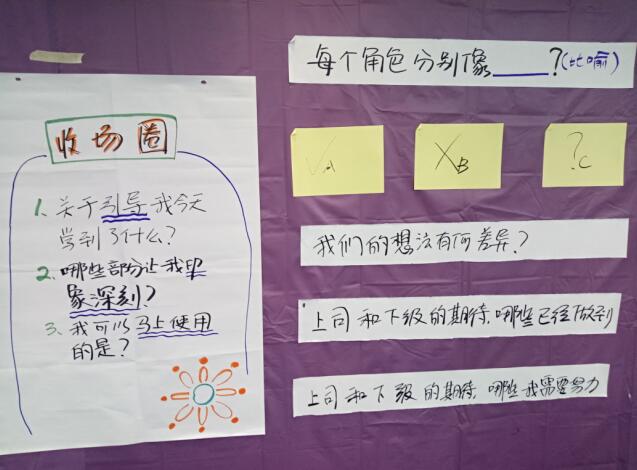 收场圈
1. 关于引导我今天
学到了什么?
2. 哪些部分让我印
象深刻?
3. 我可以马上使用
的是?
每个角色分别像____?(比喻)
√A
XB
?C
我们的想法有何差异?
上司和下级的期待,哪些已经做到
上司和下级的期待,哪些我需要努力